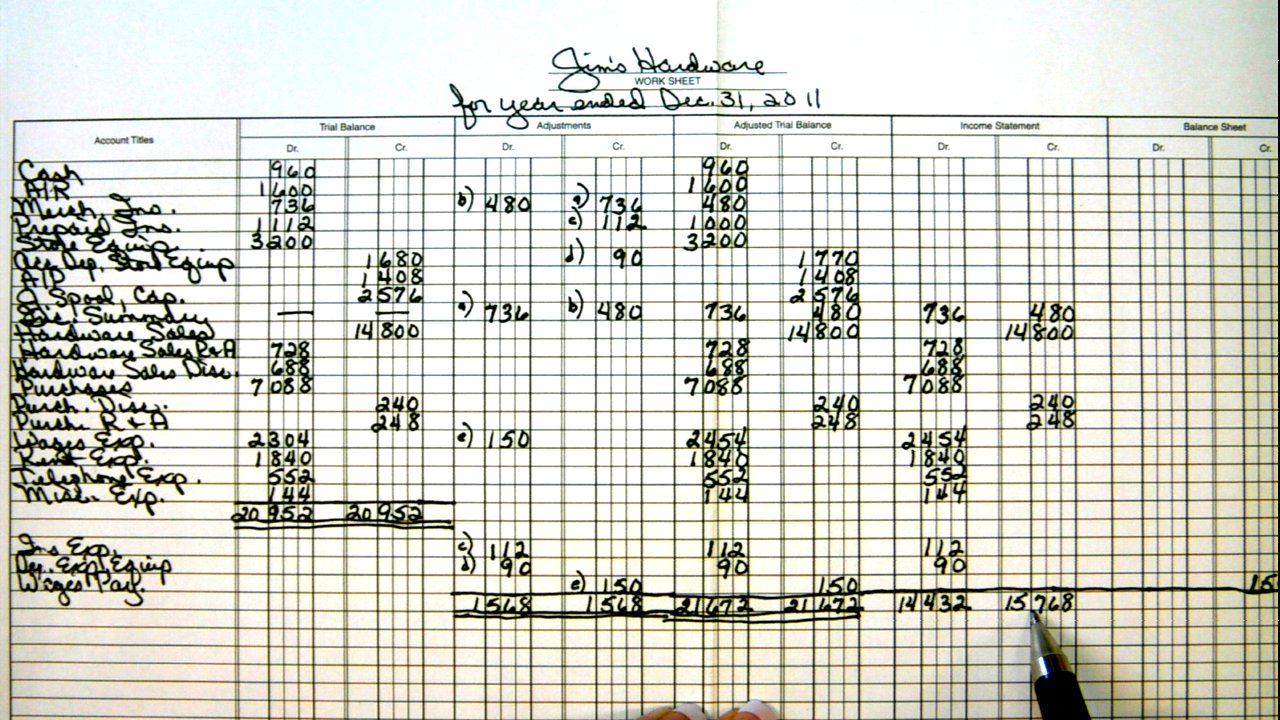 Jim's Hardware
WORK SHEET
for year ended Dec. 31, 2011
Account Titles Trial Balance Adjustments Adjusted Trial Balance Income Statement Balance Sheet
Dr. Cr. Dr. Cr. Dr. Cr. Dr. Cr. Dr. Cr.
Cash 960 960
A/R 1600 1600
Merch. Ins. 736 b) 480 a) 736 480
Prepaid Ins. 1112 c) 112 1000
Store Equip. 3200 3200
Acc. Dep. Store Equip 1680 d) 90 1770
A/P 1408 1408
J. Spool, Cap. 2576 2576
Inc. Summary — — a) 736 b) 480 736 480 736 480
Hardware Sales 14800 14800 14800
Hardware Sales R+A 728 728 728
Hardware Sales Disc. 688 688 688
Purchases 7088 7088 7088
Purch. Disc. 240 240 240
Purch. R+A 248 248 248
Wages Exp. 2304 e) 150 2454 2454
Rent Exp. 1840 1840 1840
Telephone Exp. 552 552 552
Misc. Exp. 144 144 144
20952 20952
Ins Exp. c) 112 112 112
Dep. Exp Equip d) 90 90 90
Wages Pay. e) 150 150 15
1568 1568 21672 21672 14432 15768